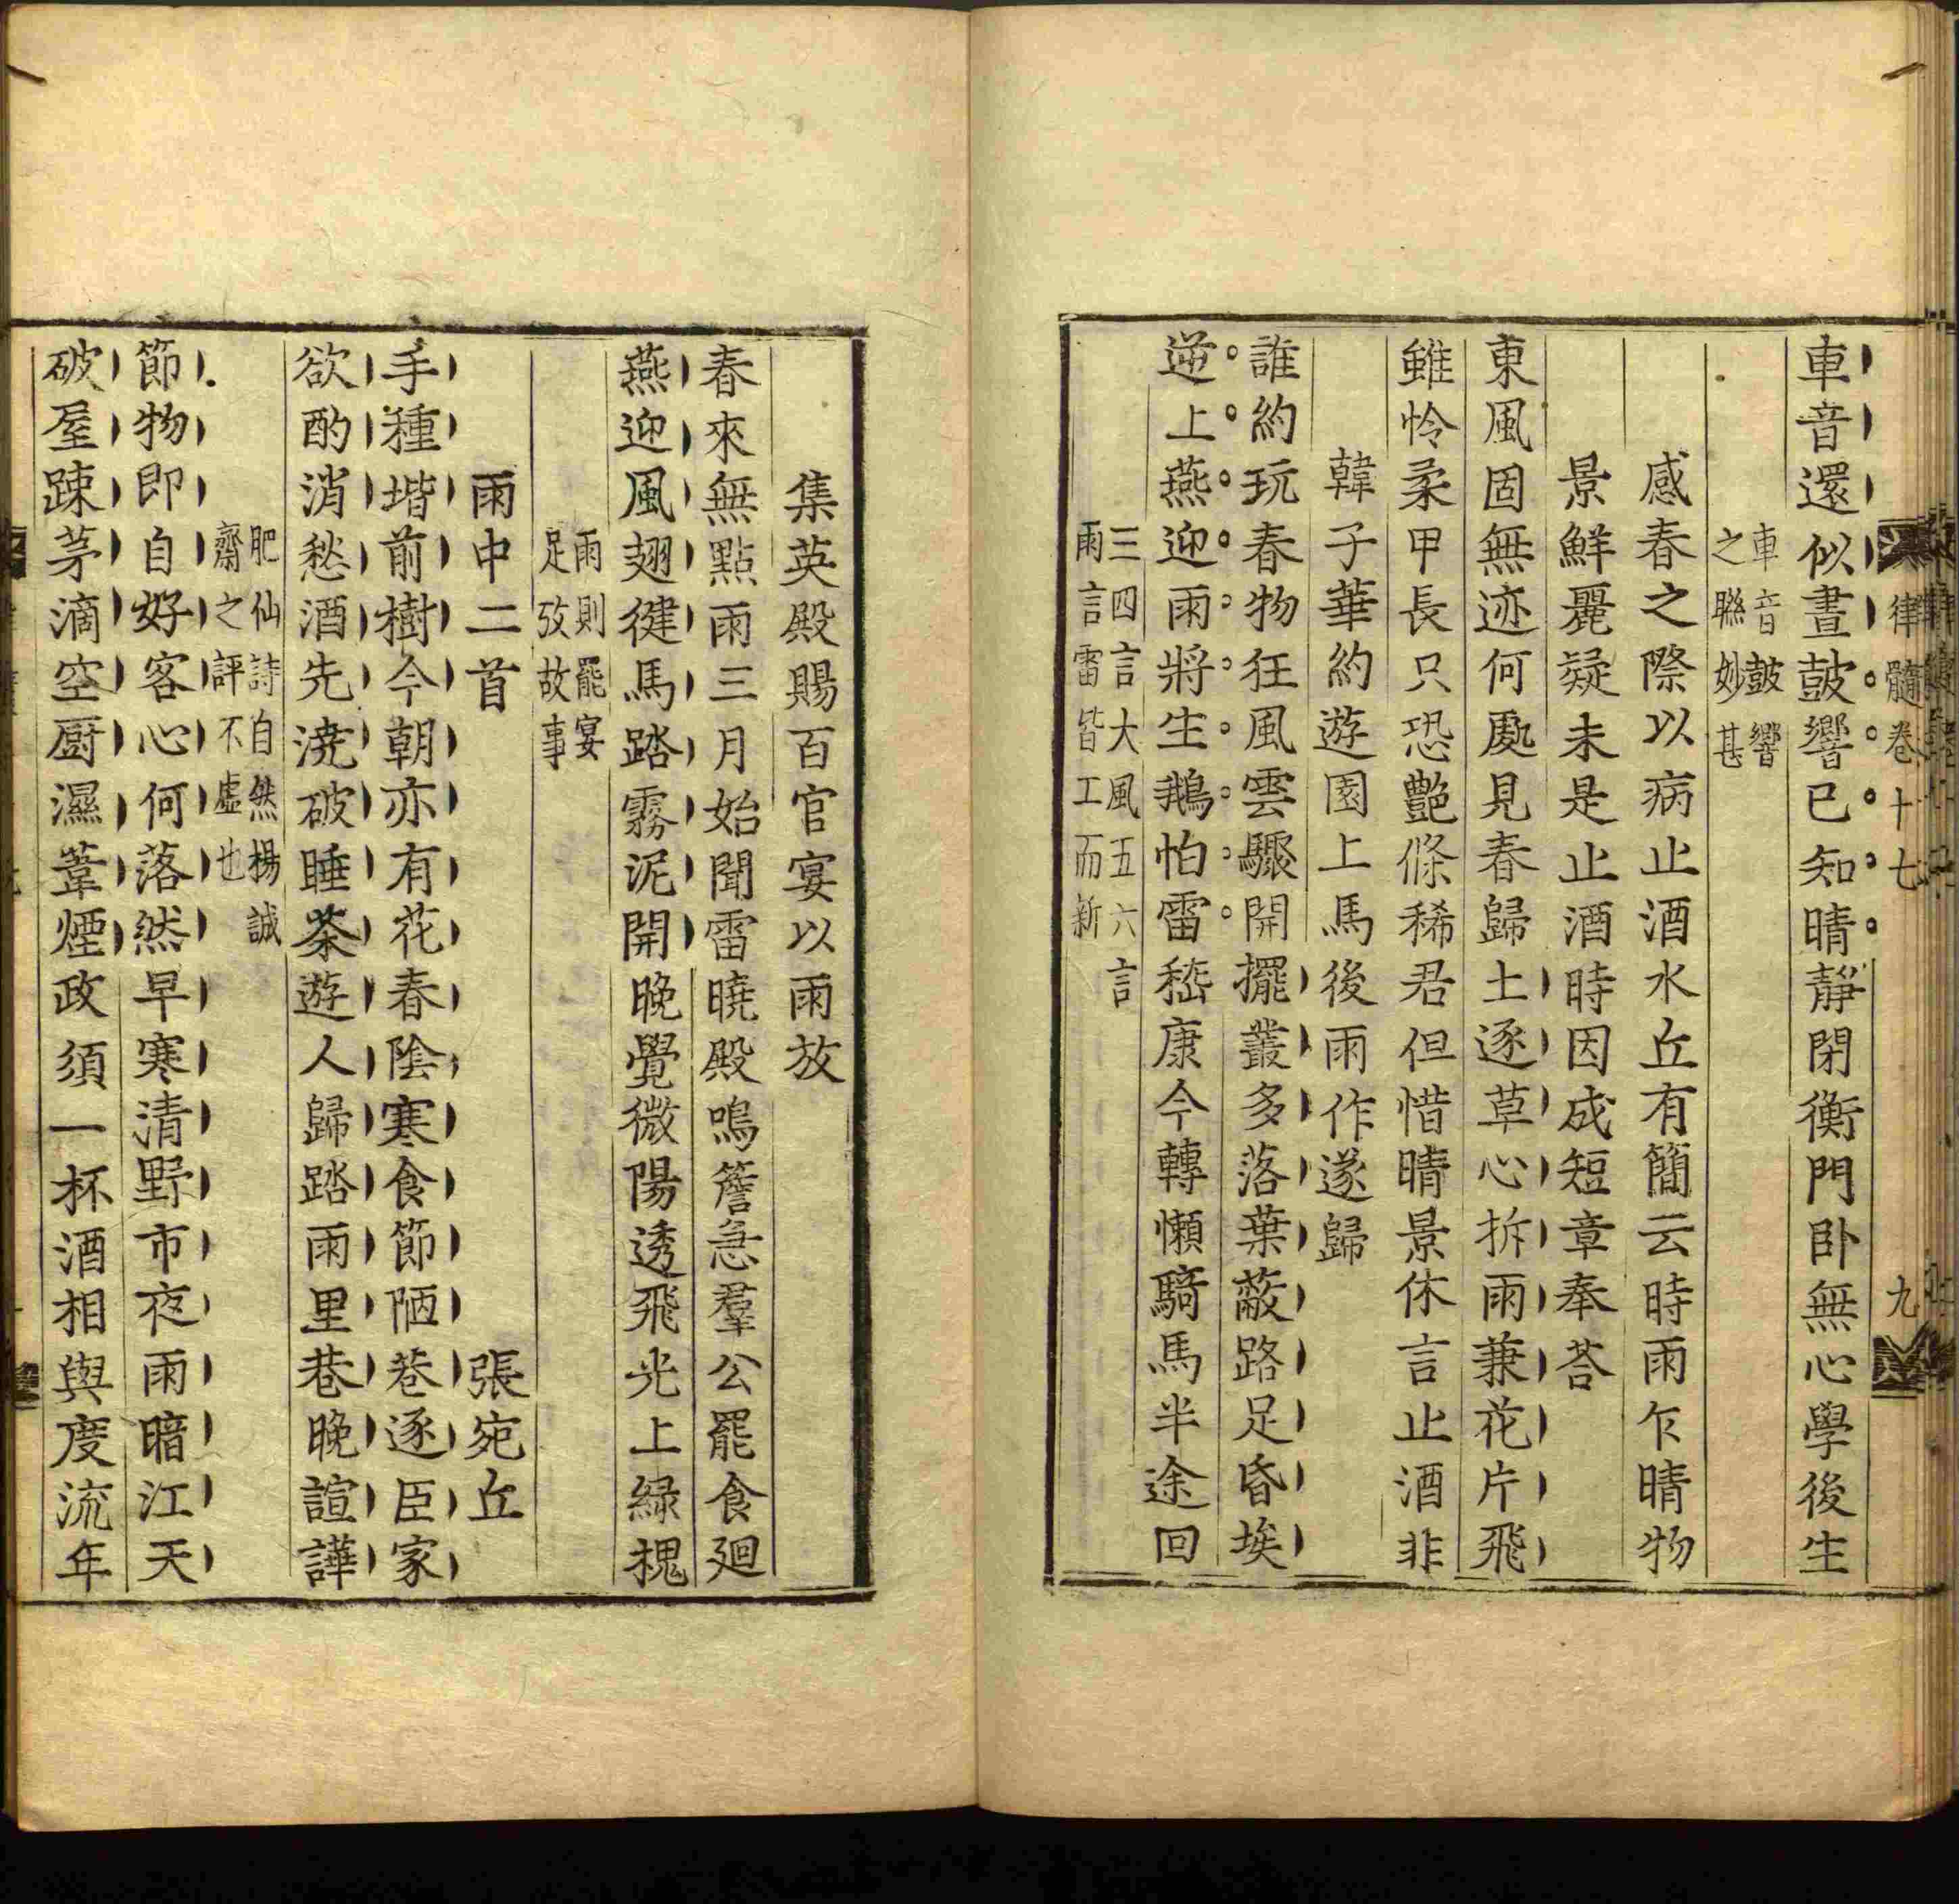 律髓卷十七
九
車音還似晝皷響已知晴靜閉衡門卧無心學後生
車音皷響
之聮妙甚
感春之際以病止酒水丘有簡云時雨乍晴物
景鮮麗疑未是止酒時因成短章奉荅
東風固無迹何處見春歸土逐草心拆雨兼花片飛
雖怜柔甲長只恐艷條稀君但惜晴景休言止酒非
韓子華約遊園上馬後雨作遂歸
誰約玩春物狂風雲驟開擺叢多落葉蔽路足昏埃
逆上燕迎雨將生鵝怕雷嵇康今轉懶騎馬半途回
三四言大風五六言
雨言雷皆工而新
集英殿賜百官宴以雨放
春來無點雨三月始聞雷曉殿鳴簷急羣公罷食廻
燕迎風翅健馬踏霧泥開晚覺微陽透飛光上緑槐
雨則罷宴
足攷故事
雨中二首 張宛丘
手種堦前樹今朝亦有花春陰寒食節陋巷逐臣家
欲酌消愁酒先澆破睡茶遊人歸踏雨里巷晚諠譁
肥仙詩自然楊誠
齋之評不虛也
節物即自好客心何落然早寒清野市夜雨暗江天
破屋踈茅滴空厨濕葦煙政須一杯酒相與度流年